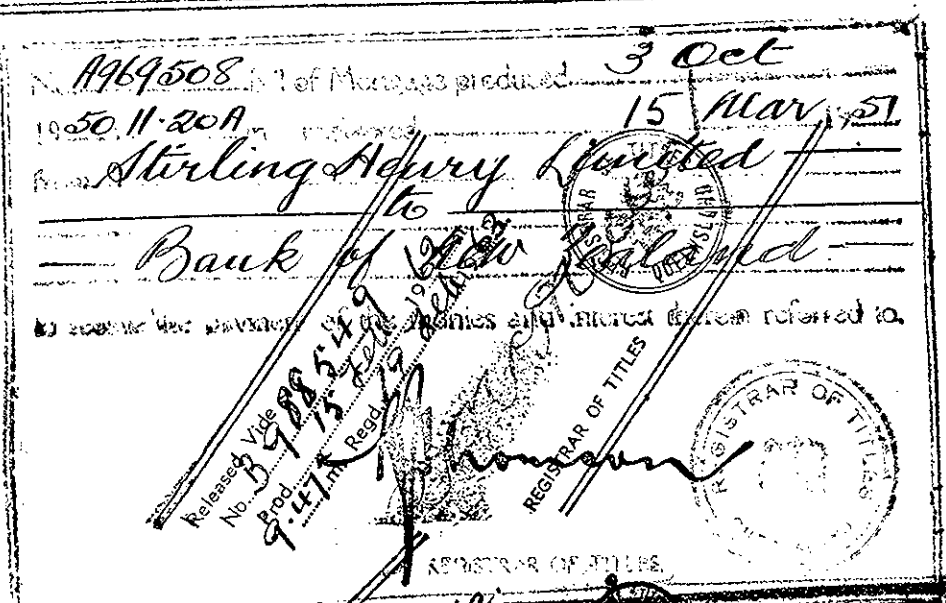 No. A969508 Bill of Mortgage produced 3 Oct
1950, 11.20A m registered 15 Mar 1951
from Stirling Henry Limited
to
Bank of New Zealand
to secure the payment of the monies and interest therein referred to.
Released Vide
No. B988549
Prod. 15 Feb 1962
9.47 m Regd. 19 Feb 1962
REGISTRAR OF TITLES
REGISTRAR OF TITLES
REGISTRAR OF TITLES